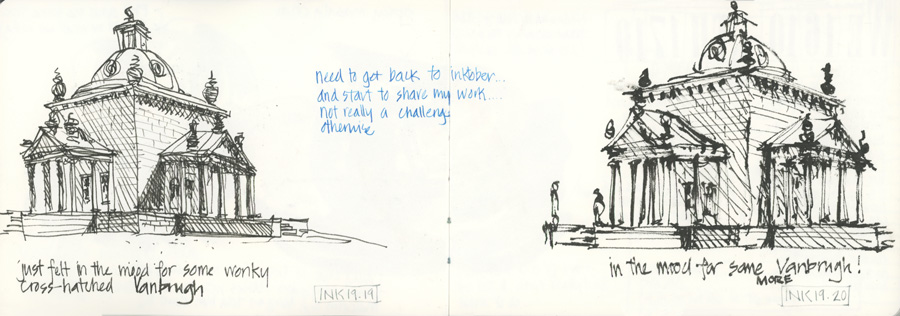 need to get back to inktober...
and start to share my work....
not really a challenge
otherwise
just felt in the mood for some wonky
cross-hatched Vanbrugh
INK19.19
in the mood for some Vanbrugh!
MORE
INK19.20